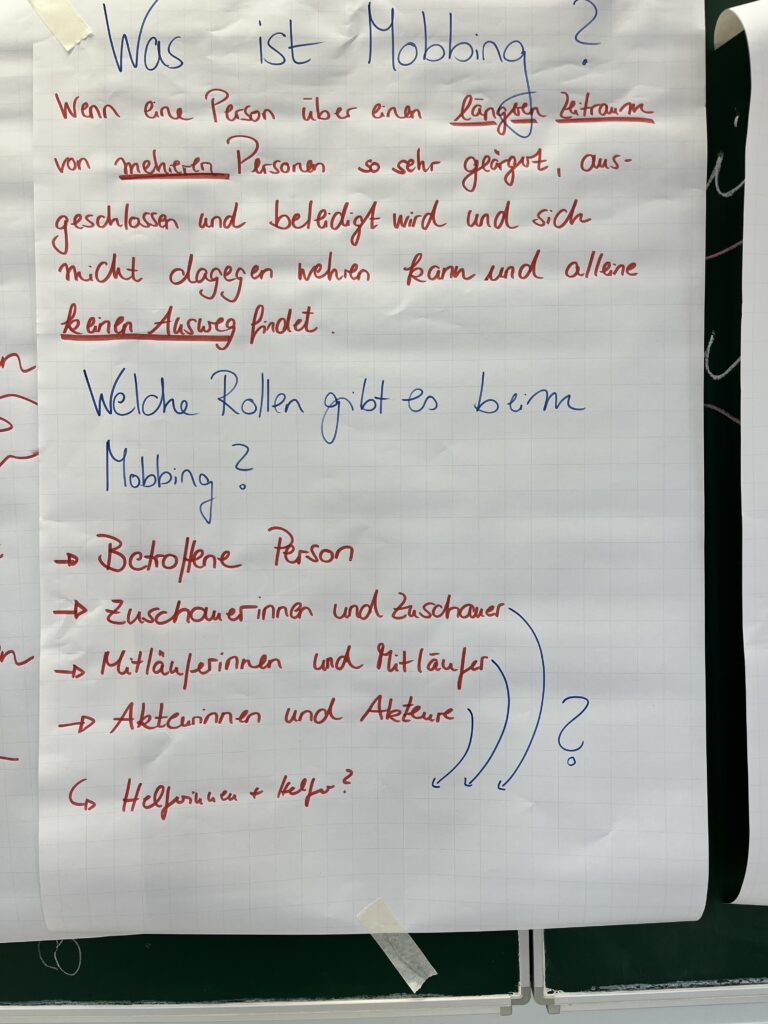 Was ist Mobbing?
Wenn eine Person über einen längeren Zeitraum
von mehreren Personen so sehr geärgert, aus-
geschlossen und beleidigt wird und sich
nicht dagegen wehren kann und alleine
keinen Ausweg findet.
Welche Rollen gibt es beim
Mobbing?
→ Betroffene Person
→ Zuschauerinnen und Zuschauer
→ Mitläuferinnen und Mitläufer
→ Akteurinnen und Akteure
?
↪ Helferinnen + Helfer?